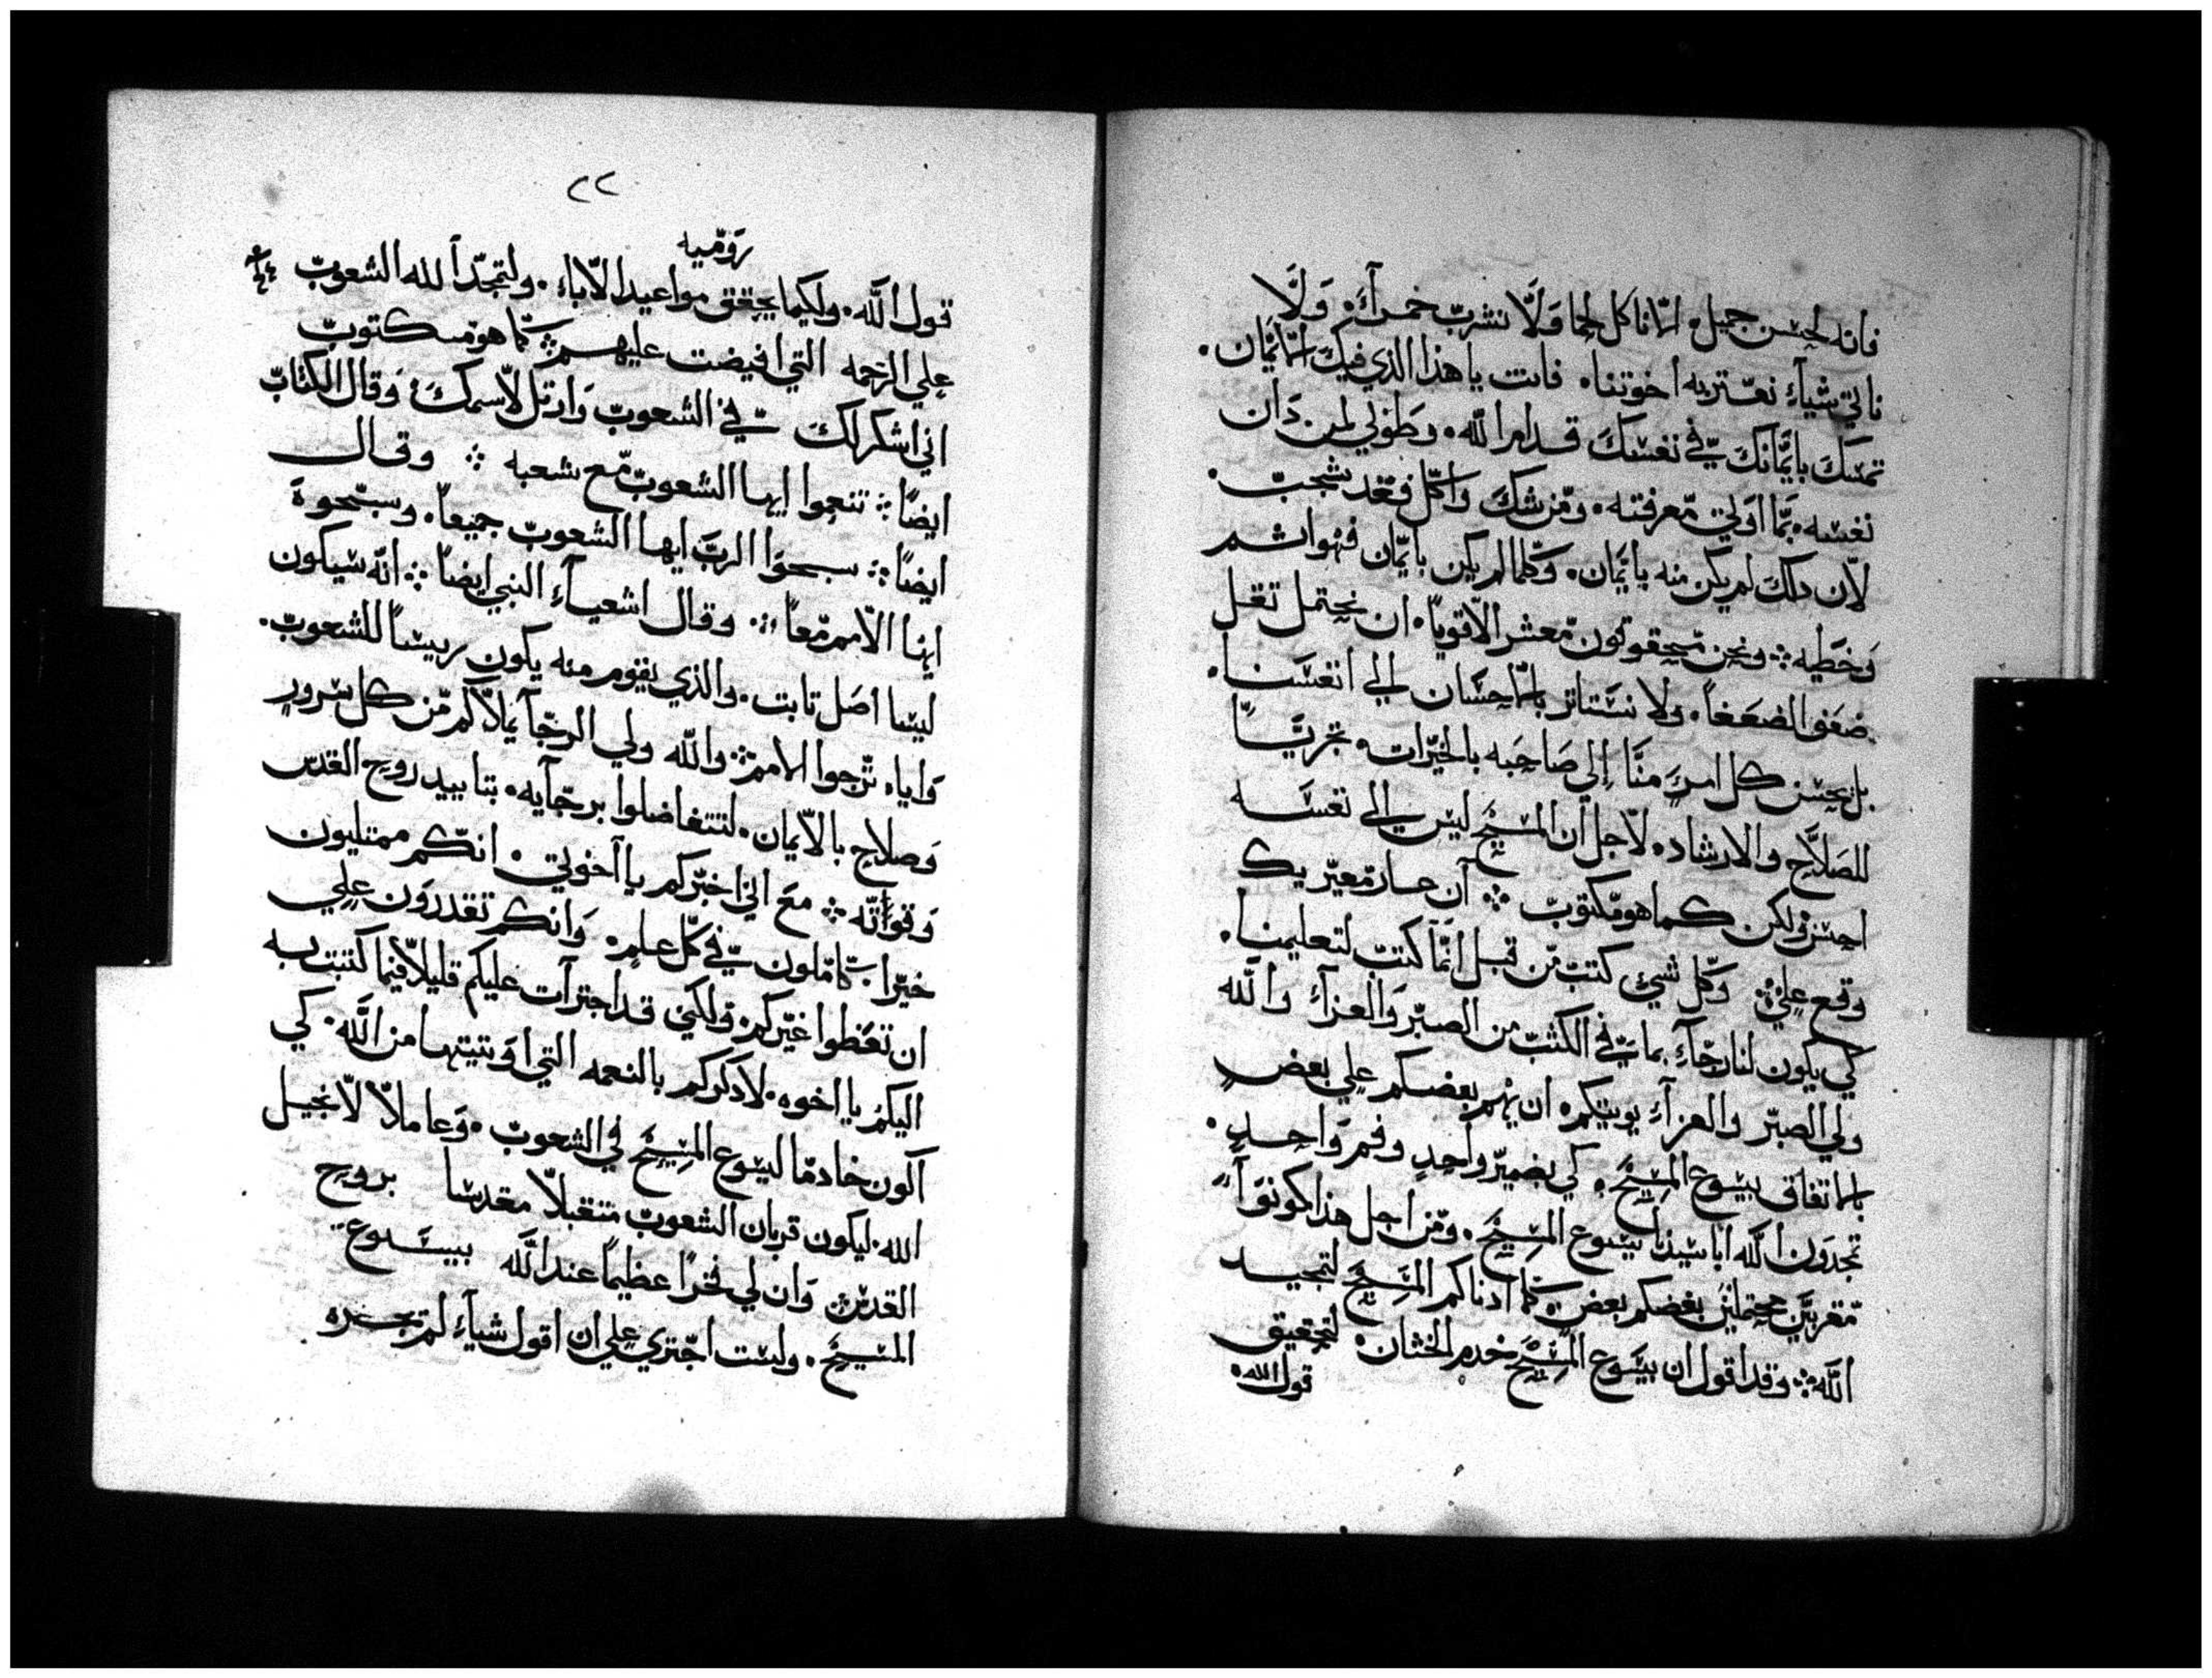 فانه لحسن جميل الّا ناكل لحما وَلَّا نشربّ خمراً وَلَّا
ناتي شيآءِ نعتربه اخوتنا، فانت يا هذا الذي فيك الايمّان.
تمسك بايمّانك في نفسكَ قدام اللّه. وطوبي لمن دَان
نفسه بمّا اوَلي مّعرفته. ومّن شك وَاكل فقد شجبّ.
لاّن دلكَ لم يكن منه بايمّان. وَكلما لم يكن بايمّان فهواثم
وَخطيه ܀ ونحن مّحقوقون مّعشر الاّقويا ان نحتمل تقل
ضعف الضعفاً. ولا نستاتر بالاحسَان الي انفسَنا.
بل يحسن كل امرءٍ منَّا اِلي صَاحبه بالخيّرات.
للصَلاَّح والارشاد. لاّجل ان المسيّح ليس الي نفسَه
احسن ولكن كما هو مّكتوبّ ܀ ان عار مّعيّريك
وقع علي ܀ وَكل شيءٍ كتبّ مّن قبل انمّا كتبّ لتعليمنا.
كي يكون لنا رجّآءِ بما في الكتبّ من الصبّر وَالعزآءِ واللّه
ولي الصبّر والعزآءِ يوتيكم. ان يهم بعضكم علي بعضٍ
بالاتفاق بيسوع المسيّح. كي بضميّر واحدٍ وفم وَاحدٍ.
تمجدون اللّه ابا سيدنا يسوع المسيّح. ومّن اجل هذا كونوآ
مّقربيّن محتمليّن بعضكم بعض ܀ كما ادناكم المسيّح لتمجيد
اللّه ܀ وقد اقول ان يسَوع المسيّح خدم الختان. لتحقيق
قول الله.
٢٢
رَومّيه
قول اللّه. ولكيما يحقق مواعيد الاّباءِ. ولتمجّد اللّه الشعوبّ
علي الرحمه التي افيضت عليهم ܀ كمّا هو مّكتوبّ
اني اشكر لكَ في الشعوبّ وَارتل لاّسمكَ. وَقال الكتابّ
ايضاً ܀ تنعموا ايها الشعوبّ مّع شعبه ܀ وقال
ايضاً ܀ سبحوا الربَّ ايها الشعوبّ جميعاً. وسبّحوهَ
ايها الاّمم مّعاً ܀ وقال اشعيآءِ النبي ايضاً ܀ انّه سيكون
ليسا اصَل تابت. والذي يقوم منه يكون ريسا للشعوبّ.
وَاياه ترّجوا الامم ܀ واللّه ولي الرجّآ يملاّكم مّن كل سرورٍ
وَصلاح بالاّيمان. لتتفاضلوا برجّآيه. بتاييد روح القدس
وَقواتّه ܀ معَ اني اخبّركم يا آخوتي. انكّم ممتليون
خيّراً كاملون في كلّ علمٍ. وَانكم تقدروَن علي
ان تعَظوا غيّركم. ولكني قد اجترآت عليكم قليلاً فيما كتبت به
اليكم يا اخوه. لادكركم بالنعمه التي اوتيتها من اللّه. كي
آكون خادمّا ليسوع المسيّح في الشعوبّ. وَعاملاً لاّنجيل
الله. ليكون قربان الشعوبّ متقبلاً مقدسا بروح
القدس ܀ وَان لي فخراً عظيماً عند اللّه بيسَوع
المسيّح. ولست اجّتري علي ان اقول شيآءِ لم يجره